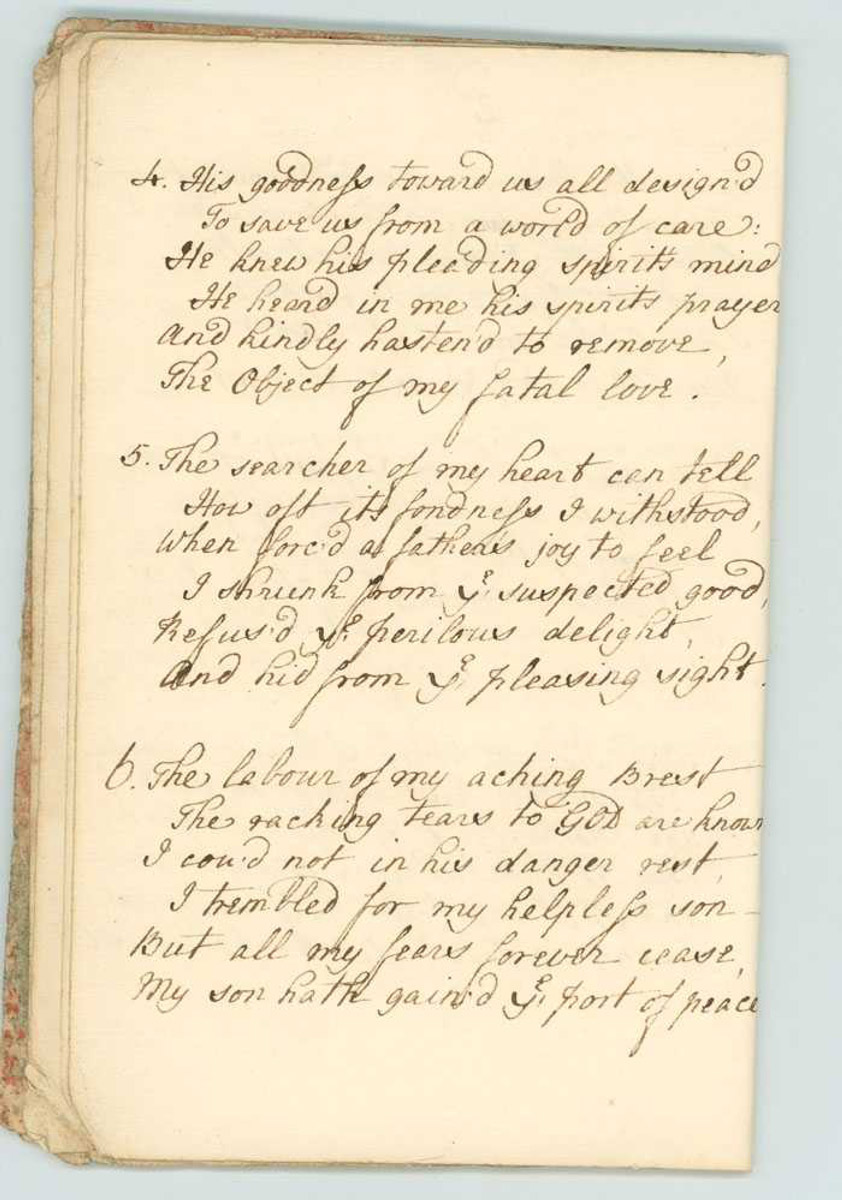 4. His goodness toward us all design'd
To save us from a world of care:
He knew his pleading spirit's mind
He heard in me his spirits prayer
And kindly hasten'd to remove,
The Object of my fatal love.
5. The searcher of my heart can tell
How oft its fondness I withstood,
When forc'd a father's joy to feel
I shrunk from ye suspected good,
Refus'd ye perilous delight,
And hid from ye pleasing sight.
6. The labour of my aching Brest
The racking tears to GOD are known
I cou'd not in his danger rest,
I trembled for my helpless son –
But all my fears forever cease,
My son hath gain'd ye port of peace